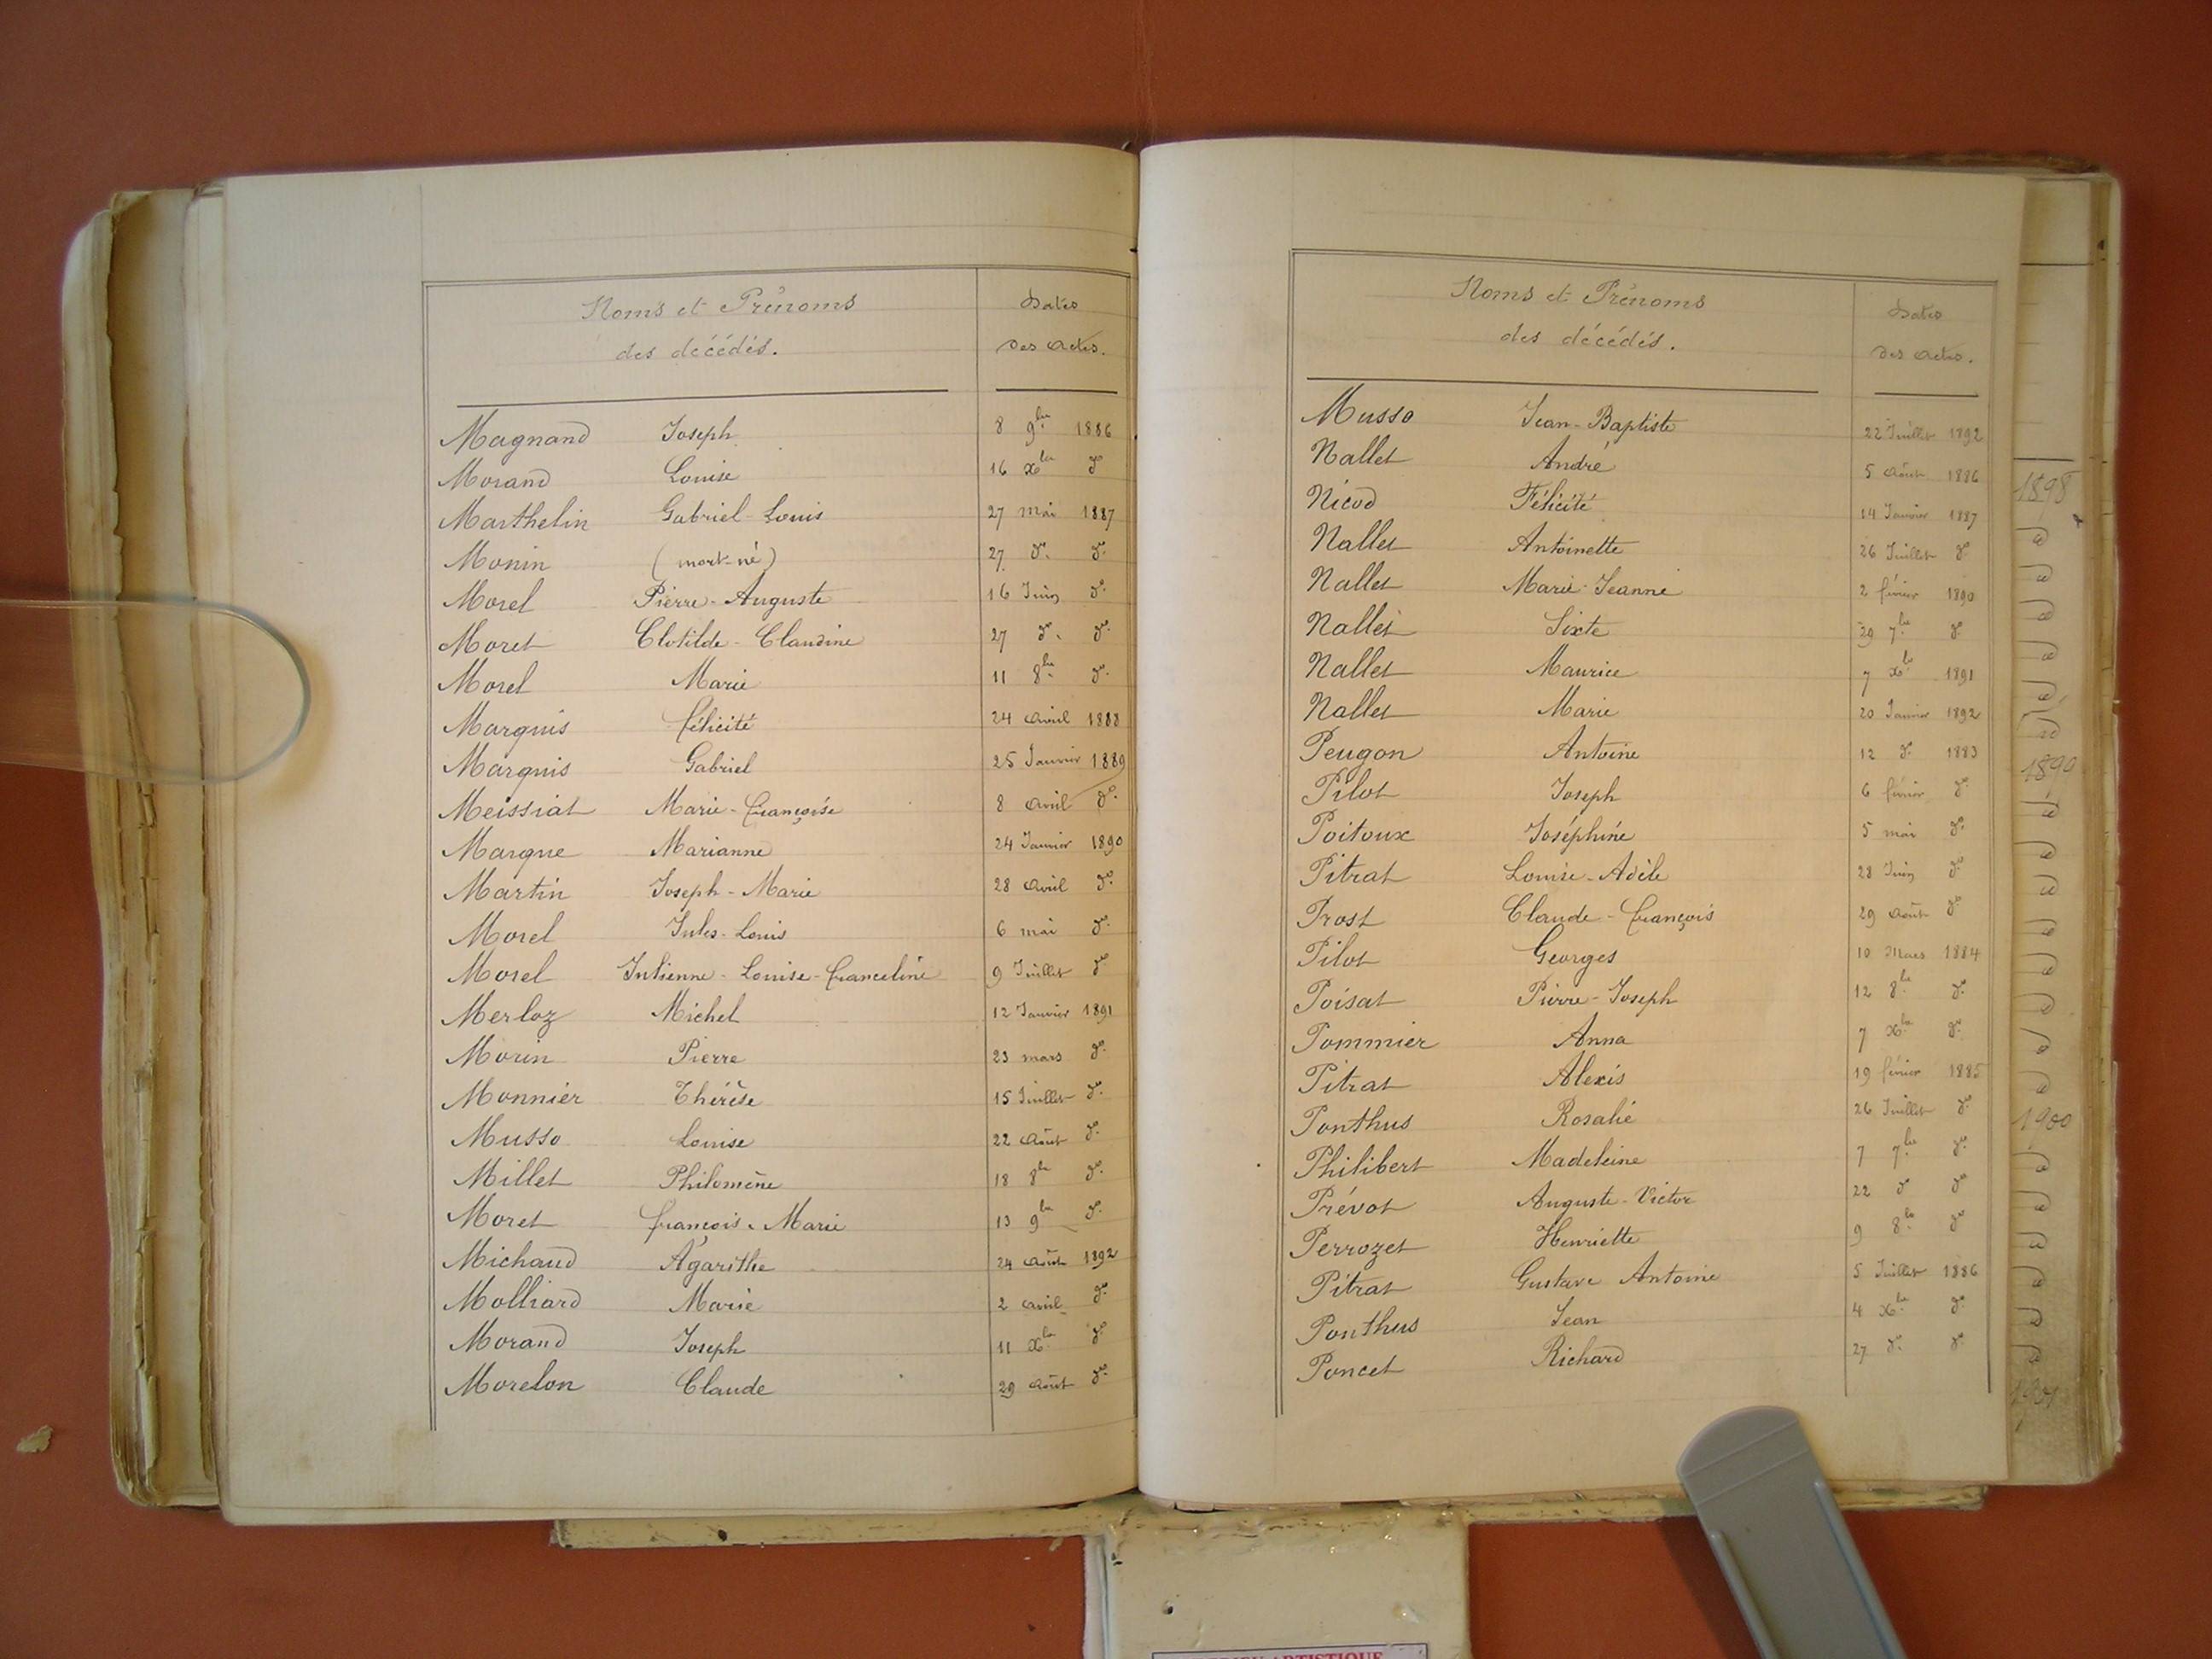 Noms et Prénoms Dates
des décédés. des actes.
Magnand Joseph 8 9bre 1886
Morand Louise 16 Xbre do
Marthelin Gabriel-Louis 27 mai 1887
Monin (mort-né) 27 do do
Morel Pierre-Auguste 16 Juin do
Moret Clotilde-Claudine 27 do do
Morel Marie 11 8bre do
Marquis félicité 24 avril 1888
Marquis Gabriel 25 Janvier 1889
Meissiat Marie-françoise 8 avril do
Marque Marianne 24 Janvier 1890
Martin Joseph-Marie 28 avril do
Morel Jules-Louis 6 mai do
Morel Julienne-Louise-franceline 9 Juillet do
Merloz Michel 12 Janvier 1891
Morin Pierre 23 mars do
Monnier Thérèse 15 Juillet do
Musso Louise 22 août do
Millet Philomène 18 8bre do
Moret françois-Marie 13 9bre do
Michaud Agarithe 24 août 1892
Molliard Marie 2 avril do
Morand Joseph 11 Xbre do
Morelon Claude 29 août do
Noms et Prénoms Dates
des décédés. des actes.
Musso Jean-Baptiste 22 Juillet 1892
Nallet André 5 août 1886
Nicod Félicité 14 Janvier 1887
Nallet Antoinette 26 Juillet do
Nallet Marie-Jeanne 2 février 1890
Nallet Sixte 29 7bre do
Nallet Maurice 7 Xbre 1891
Nallet Marie 20 Janvier 1892
Peugon Antoine 12 do 1883
Pilot Joseph 6 février do
Poitoux Joséphine 5 mai do
Pitrat Louise-Adèle 28 Juin do
Prost Claude-françois 29 août do
Pilot Georges 10 Mars 1884
Poisat Pierre-Joseph 12 8bre do
Pommier Anna 7 Xbre do
Pitrat Alexis 19 février 1885
Ponthus Rosalie 26 Juillet do
Philibert Madeleine 7 7bre do
Prévot Auguste-Victor 22 do do
Perrozet Henriette 9 8bre do
Pitrat Gustave Antoine 5 Juillet 1886
Ponthus Jean 4 Xbre do
Poncet Richard 27 do do
1898
1890
1900
ARTISTIQUE